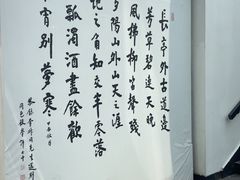 長亭外古道邊
芳草碧連天晚
風拂柳笛聲殘
夕陽山外山天之涯
地之角知交半零落
瓢濁酒盡餘歡
宵別夢寒